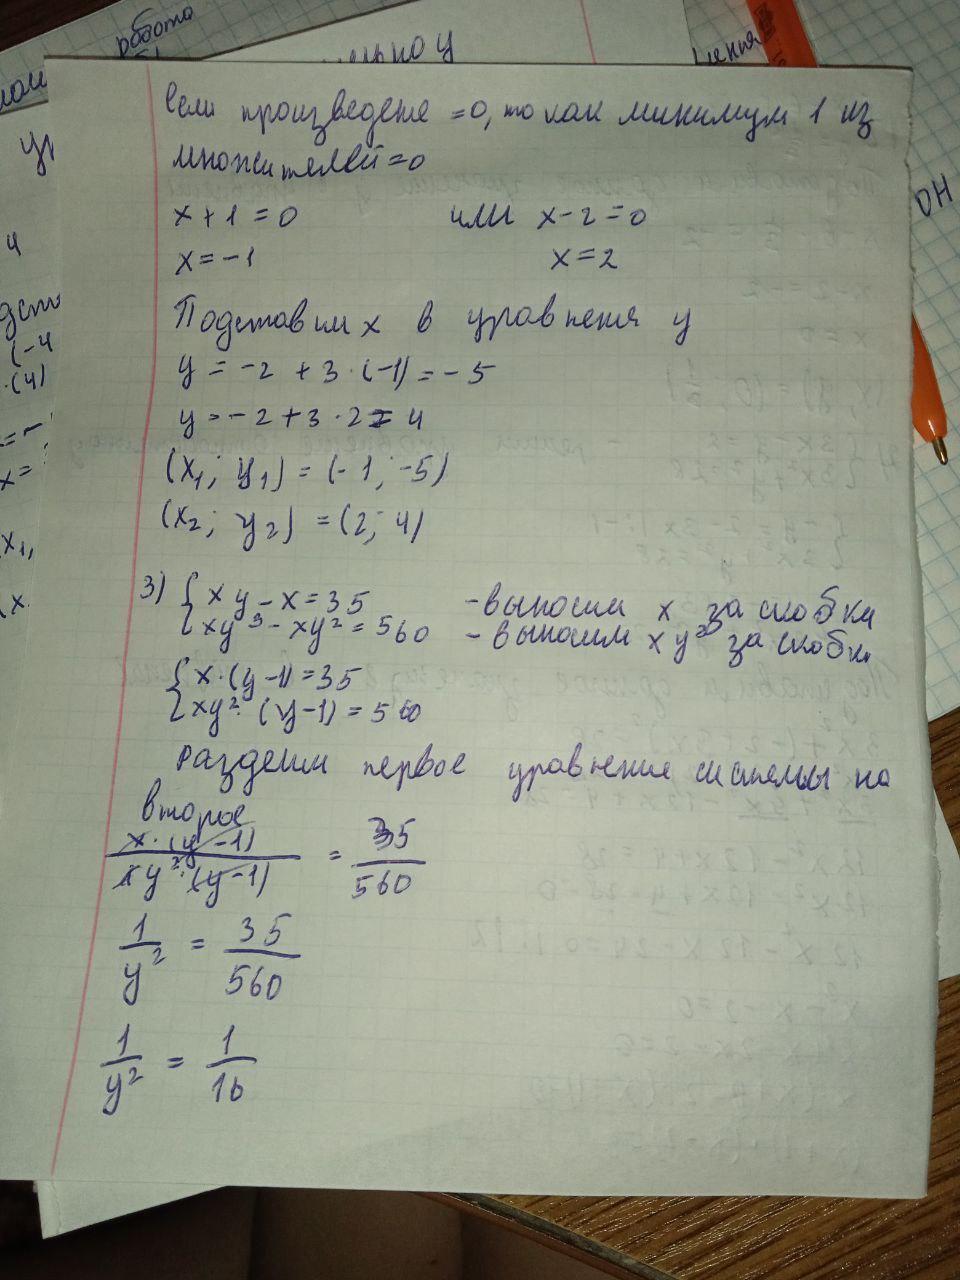 Если произведение =0, то как минимум 1 из
множителей =0
x+1=0 или x-2=0
x=-1 x=2
Подставим x в уравнения y
y = -2 + 3·(-1) = -5
y = -2 + 3·2 = 4
(x₁; y₁) = (-1; -5)
(x₂; y₂) = (2; 4)
3) { xy - x = 35 - выносим x за скобки
{ xy³ - xy² = 560 - выносим xy² за скобки
{ x·(y-1) = 35
{ xy²·(y-1) = 560
Разделим первое уравнение системы на
второе
x·(y-1) / xy²·(y-1) = 35/560
1/y² = 35/560
1/y² = 1/16